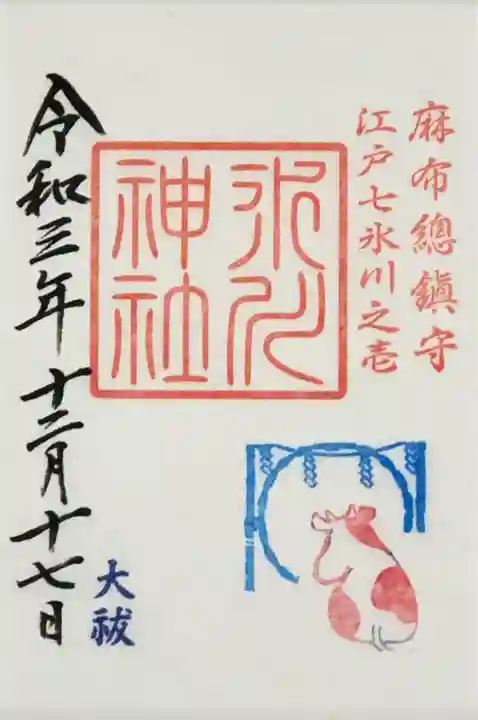 麻布總鎮守
江戸七氷川之壱
氷川
神社
令和三年十二月十七日
大祓